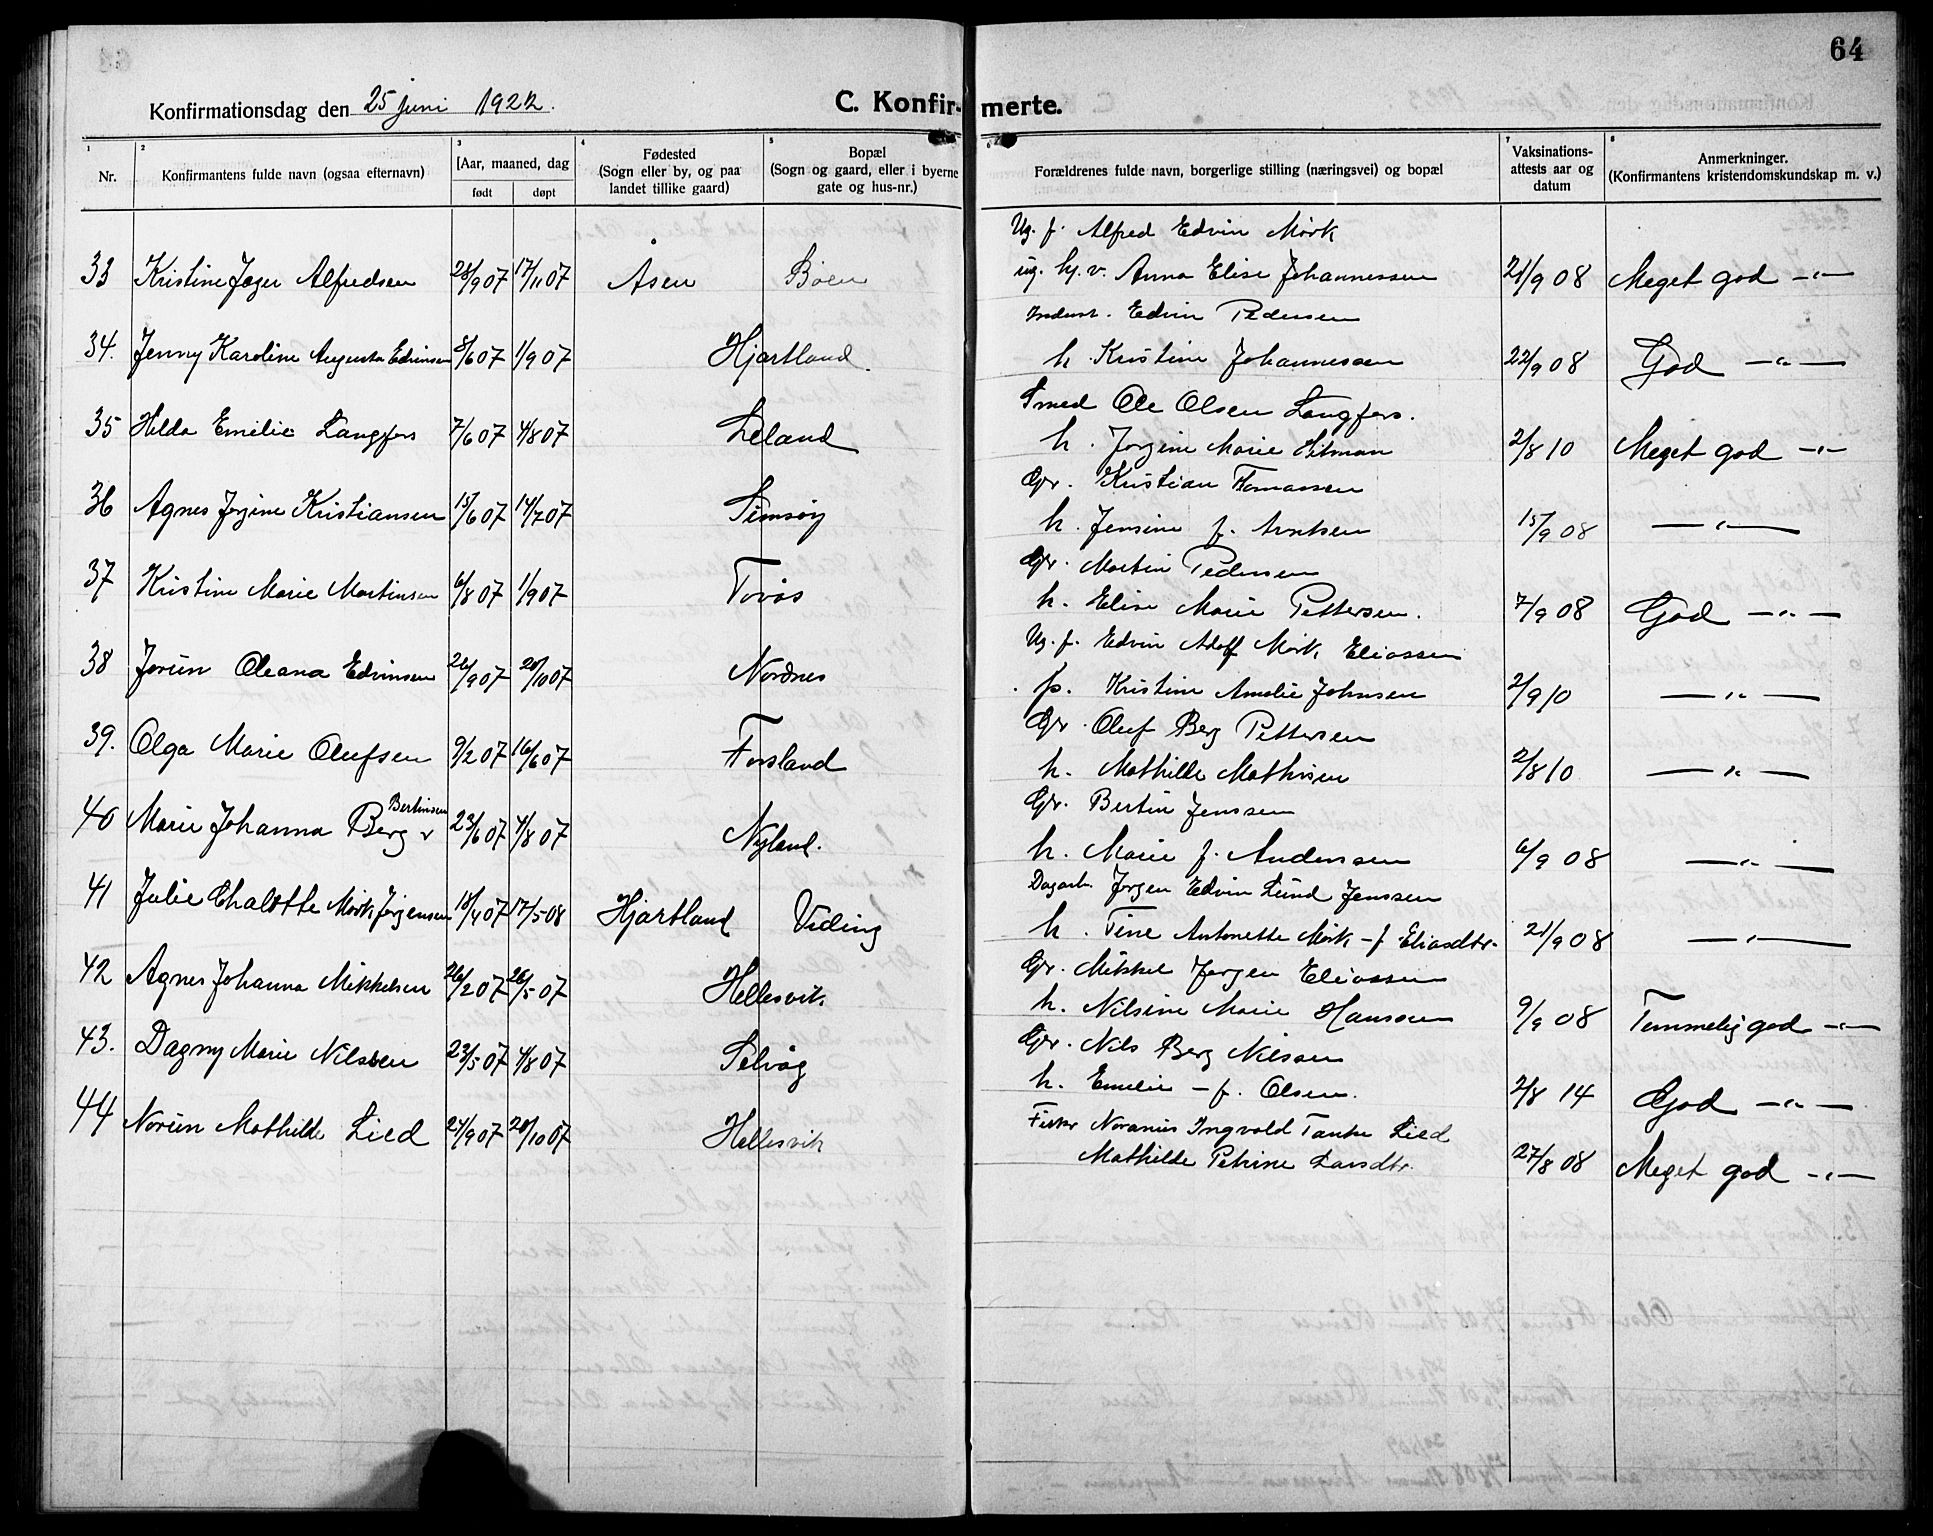 64
Konfirmationsdag den 25 juni 1922.
C. Konfirmerte.
1 2 3 4 5 7 8
Nr. Konfirmantens fulde navn (ogsaa efternavn) [Aar, maaned, dag født døpt Fødested (Sogn eller by, og paa landet tillike gaard) Bopæl (Sogn og gaard, eller i byerne gate og hus-nr.) Forældrenes fulde navn, borgerlige stilling (næringsvei) og bopæl Vaksinations-attests aar og datum Anmerkninger. (Konfirmantens kristendomskundskap m. v.)
Ug. f. Alfred Edvin Mörk
33 Kristine Jæger Alfredsen 28/9 07 17/11 07 Åsen Böen ug. hj. v. Anna Elise Johannessen 21/9 08 Meget god -"-
Inderst. Edvin Pedersen
34. Jenny Karoline Augusta Edvinsen 8/6 07 1/9 07 Hjartland. h. Kristine Johannessen 22/9 08 God -"-
Smed Ole Olsen Langfors.
35 Hilda Emilie Langfors 7/6 07 4/8 07 Leland h. Jorgine Marie Hitman 2/8 10 Meget god -"-
Gr. Kristian Tomassen
36 Agnes Jorgine Kristiansen 15/6 07 14/7 07 Simsöy h. Jensine f. Arntsen 15/9 08 -"-
Gr. Martin Pedersen
37 Kristine Marie Martinsen 6/8 07 1/9 07 Toväs h. Elise Marie Pettersen. 7/9 08 God -"-
Ug. f. Edvin Adolf Mörk Eliassen
38 Jorun Oleana Edvinsen 26/9 07 20/10 07 Nordnes p. Kristine Amalie Johnsen 2/9 10 -"-
Gr. Oluf Berg Pettersen
39. Olga Marie Olufsen 9/2 07 16/6 07 Forsland h. Mathilde Mathisen 2/8 10 -"-
Gr. Bertin Jenssen
Bertinsen
40 Marie Johanna Berg v 23/6 07 4/8 07 Nyland. h. Marie f. Anderssen 6/9 08 -"-
Dagarb. Jorgen Edvin Lund Jenssen
41 Julie Chalotte Mörk Jørgensen 18/4 07 17/5 08 Hjartland Viding h. Tine Antonette Mörk - f. Eliasdtr. 21/9 08 -"-
Gr. Mikkel Jorgen Eliassen
42 Agnes Johanna Mikkelsen 26/2 07 26/5 07 Hellesvik h. Nilsine Marie Hanssen 9/9 08 Temmelig god -"-
Gr. Nils Berg Nilssen
43. Dagny Marie Nilssen 23/5 07 4/8 07 Selvåg h. Emelie - f. Olsen. 2/8 14 God -"-
Fisker Noranius Ingvald Tanke Lied
44 Norun Mathilde Lied 27/9 07 20/10 07 Hellesvik Mathilde Petrine Larsdtr. 27/8 08 Meget god -"-